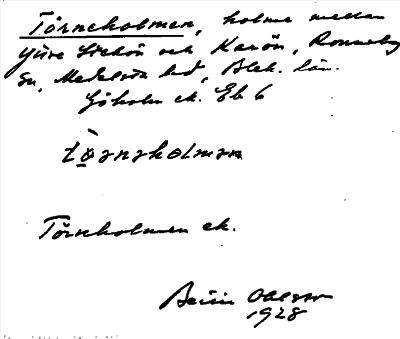 Törneholmen, holme mellan
yttre Stekön och Karön, Ronneby
sn, Medelsta hd, Blek. län.
Sjökolm ek. Eb 6
tö̀rnəholmən
Törnholmen ek.
Ohlsson
1928